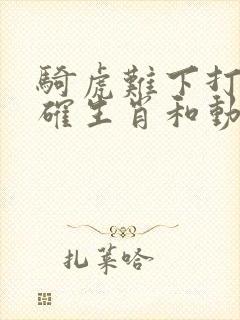 騎虎難下打
確生肖和動
扎萊哈